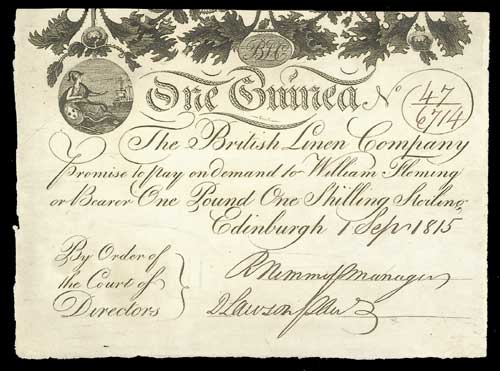 BLC
One Guinea No 47/6714
The British Linen Company
Promise to pay on demand to William Fleming
or Bearer One Pound One Shilling Sterling
Edinburgh 1 Sep 1815
By Order of
the Court of
Directors
Manager